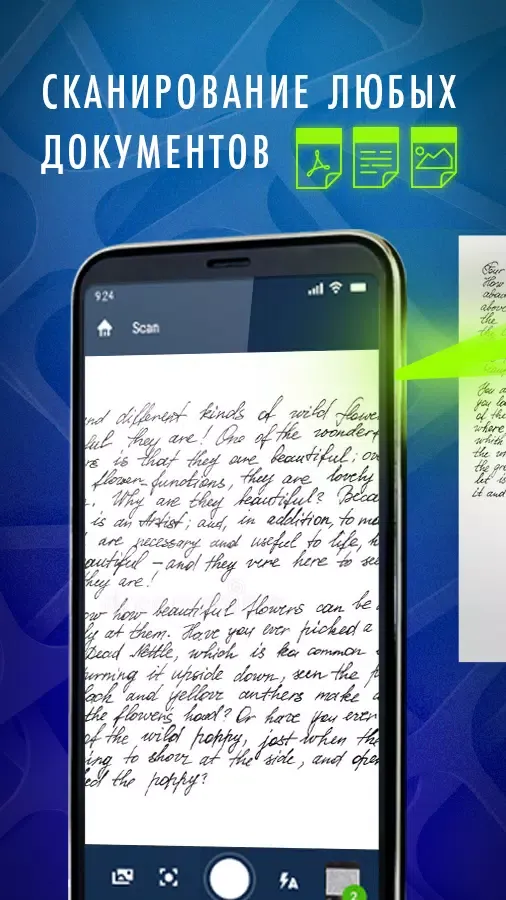 СКАНИРОВАНИЕ ЛЮБЫХ
ДОКУМЕНТОВ
924
Scan
nd different kinds of wild flowe
ful they are! One of the wonderf
is that they are beautiful; ov
flower-functions, they are lovely
. Why are they beautiful? Beca
is an Artist; and, in addition, to ma
are necessary and useful to life, h
autiful – and they vere here to se
they are!
ow how beautiful flowers can be
ly at them. Have you ever picked a
Dead Nettle, which is common
urning it upside down, seen the p
lack and yellove anthers make a
the flowers hood? Or have you ever
of the wild poppy, just when the
ing to shovr at the side, and open
ed the poppy?
A
2
Four
How
abou
above
the
the
You a
you loo
of the
where
which
the un
the gre
let is
it and